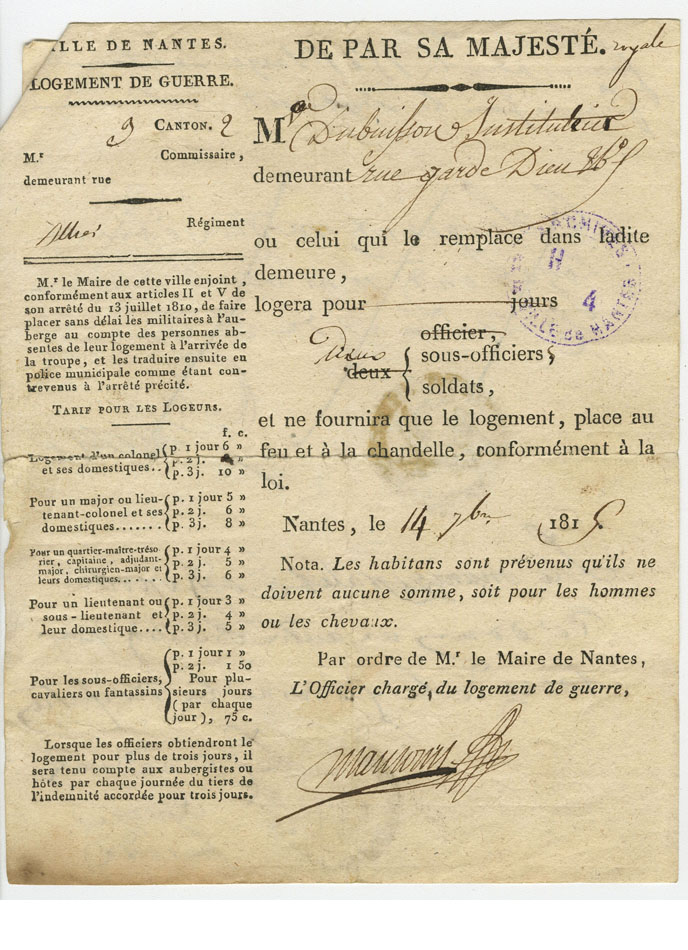 VILLE DE NANTES.
LOGEMENT DE GUERRE.
3 CANTON. 2
M.r Commissaire,
demeurant rue
Régiment
M.r le Maire de cette ville enjoint,
conformément aux articles II et V de
son arrêté du 13 juillet 1810, de faire
placer sans délai les militaires à l'au-
berge au compte des personnes ab-
sentes de leur logement à l'arrivée de
la troupe, et les traduire ensuite en
police municipale comme étant con-
trevenus à l'arrêté précité.
TARIF POUR LES LOGEURS.
f. c.
Logement d'un colonel
et ses domestiques..
p. 1 jour 6 »
p. 2 j. »
p. 3 j. 10 »
Pour un major ou lieu-
tenant-colonel et ses
domestiques.......
p. 1 jour 5 »
p. 2 j. 6 »
p. 3 j. 8 »
Pour un quartier-maître-tréso
rier, capitaine, adjudant-
major, chirurgien-major et
leurs domestiques......
p. 1 jour 4 »
p. 2 j. 5 »
p. 3 j. 6 »
Pour un lieutenant ou
sous-lieutenant et
leur domestique....
p. 1 jour 3 »
p. 2 j. 4 »
p. 3 j. 5 »
Pour les sous-officiers,
cavaliers ou fantassins
p. 1 jour 1 »
p. 2 j. 1 50
Pour plu-
sieurs jours
(par chaque
jour), 75 c.
Lorsque les officiers obtiendront le
logement pour plus de trois jours, il
sera tenu compte aux aubergistes ou
hôtes par chaque journée du tiers de
l'indemnité accordée pour trois jours.
DE PAR SA MAJESTÉ. royale
M Dubuisson Instituteur
demeurant rue garde Dieu
ou celui qui le remplace dans ladite
demeure,
logera pour jours
officier,
deux sous-officiers,
deux
soldats,
et ne fournira que le logement, place au
feu et à la chandelle, conformément à la
loi.
Nantes, le 14 7bre 1815.
Nota. Les habitans sont prévenus qu'ils ne
doivent aucune somme, soit pour les hommes
ou les chevaux.
Par ordre de M.r le Maire de Nantes,
L'Officier chargé du logement de guerre,
H
4
VILLE de NANTES